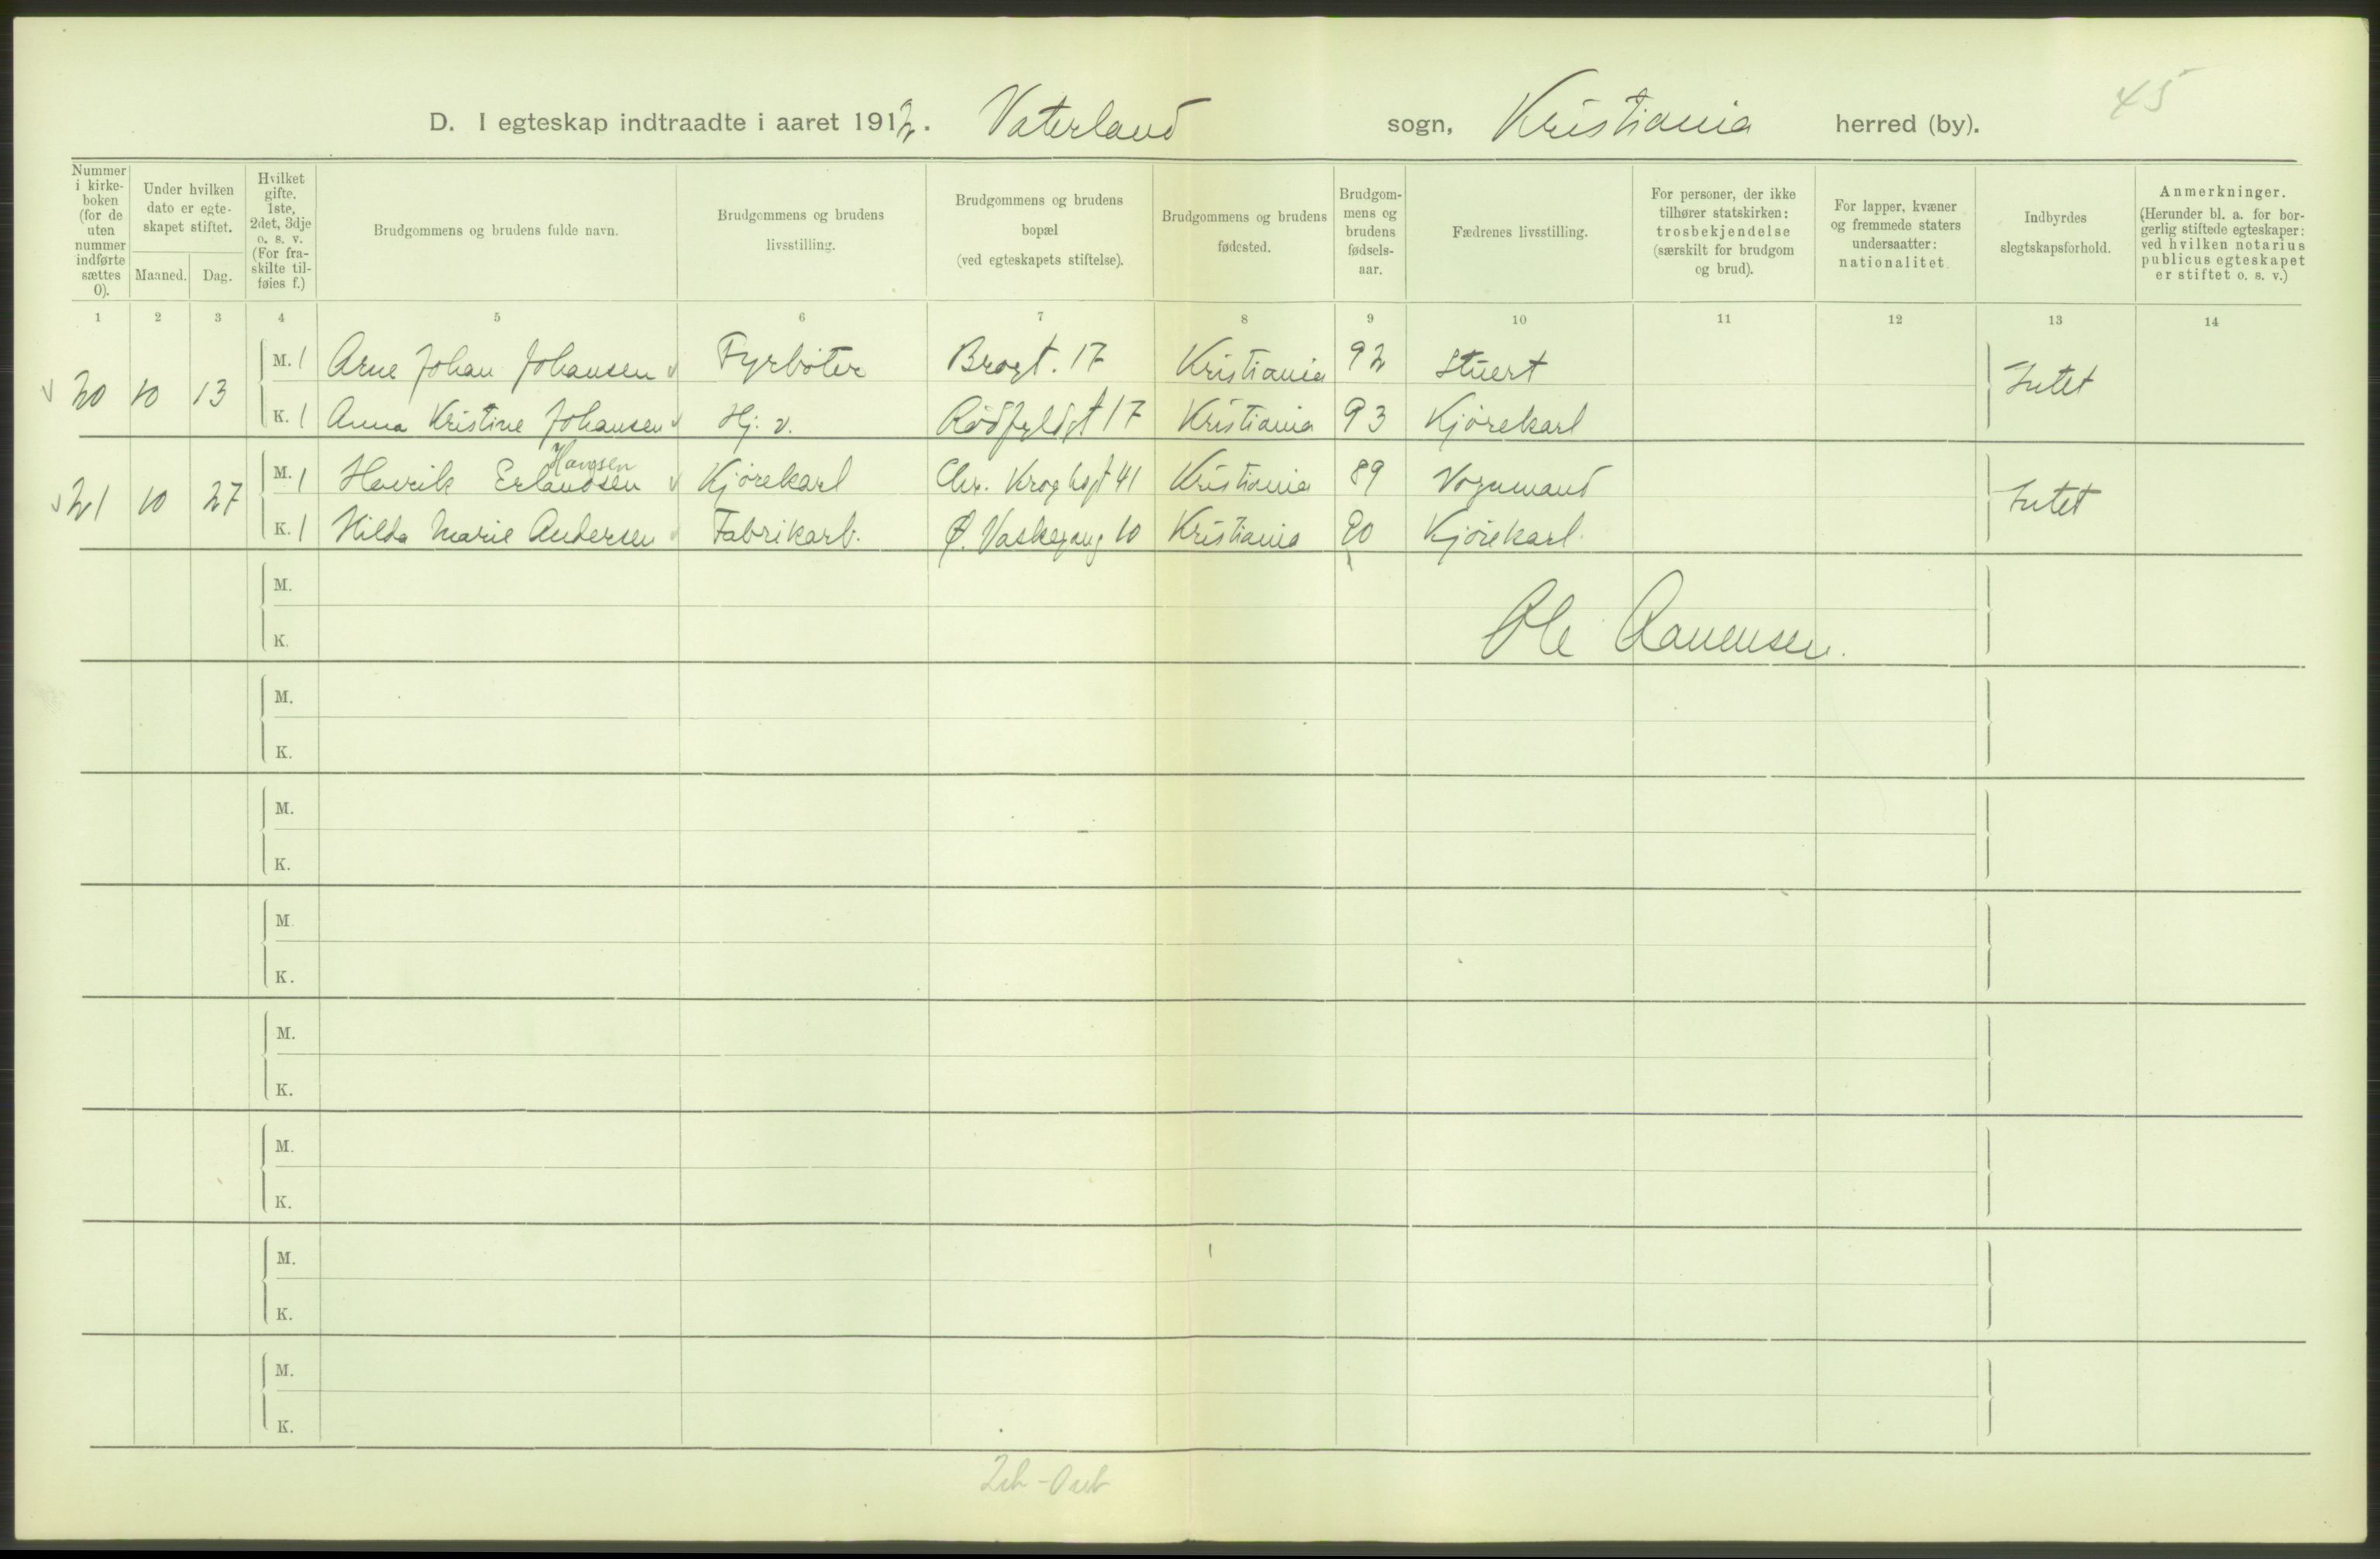 45
D. I egteskap indtraadte i aaret 1912. Vaterland sogn, Kristiania herred (by).
Nummer i kirke-boken (for de uten nummer indførte sættes 0).
Under hvilken dato er egte-skapet stiftet.
Maaned. Dag.
Hvilket gifte. 1ste, 2det, 3dje o. s. v. (For fra-skilte til-føies f.)
Brudgommens og brudens fulde navn.
Brudgommens og brudens livsstilling.
Brudgommens og brudens bopæl (ved egteskapets stiftelse).
Brudgommens og brudens fødested.
Brudgom-mens og brudens fødsels-aar.
Fædrenes livsstilling.
For personer, der ikke tilhører statskirken: trosbekjendelse (særskilt for brudgom og brud).
For lapper, kvæner og fremmede staters undersaatter: nationalitet.
Indbyrdes slegtskapsforhold.
Anmerkninger. (Herunder bl. a. for bor-gerlig stiftede egteskaper: ved hvilken notarius publicus egteskapet er stiftet o. s. v.)
1 2 3 4 5 6 7 8 9 10 11 12 13 14
20 10 13 M. 1 Arne Johan Johansen Fyrbøter Brogt. 17 Kristiania 92 Stuert Intet
K. 1 Anna Kristine Johansen Hj. v. Rødfyldgt 17 Kristiania 93 Kjørekarl
Hansen
21 10 27 M. 1 Henrik Erlandsen Kjørekarl Chr. Kroghsgt 41 Kristiania 89 Vognmand Intet
K. 1 Hilda Marie Andersen Fabrikarb. Ø. Vaskegang 10 Kristiania 90 Kjørekarl.
M.
K. Ole
M.
K.
M.
K.
M.
K.
M.
K.
M.
K.
M.
K.
M.
K.